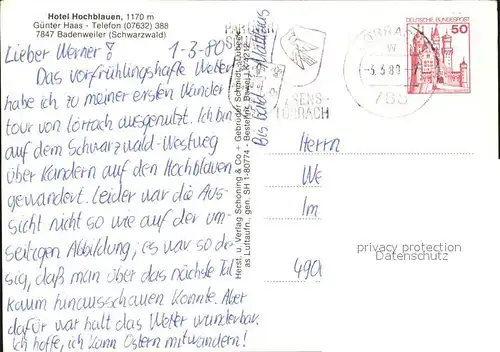 Hotel Hochblauen, 1170 m
Günter Haas - Telefon (07632) 388
7847 Badenweiler (Schwarzwald)
1-3-80
Lieber Werner!
Das vorfrühlingshafte Wetter
habe ich zu meiner ersten Wander
tour von Lörrach ausgenutzt. Ich bin
auf dem Schwarzwald-Westweg
über Kandern auf den Hochblauen
gewandert. Leider war die Aus-
sicht nicht so wie auf der um-
seitigen Abbildung, es war so die-
sig, daß man über das nächste Tal
kaum hinausschauen konnte. Aber
dafür war halt das Wetter wunderbar.
Ich hoffe, ich kann Ostern mitwandern!
Bis bald
Herst. u. Verlag Schöning & Co + Gebrüder Schmidt, Lübeck
as Luftaufn. gen. SH 1-80774 - Bestellnr. Bawei L
LÖRRACH
DEUTSCHE BUNDESPOST
50
Herrn
We
Im
490
privacy protection
Datenschutz